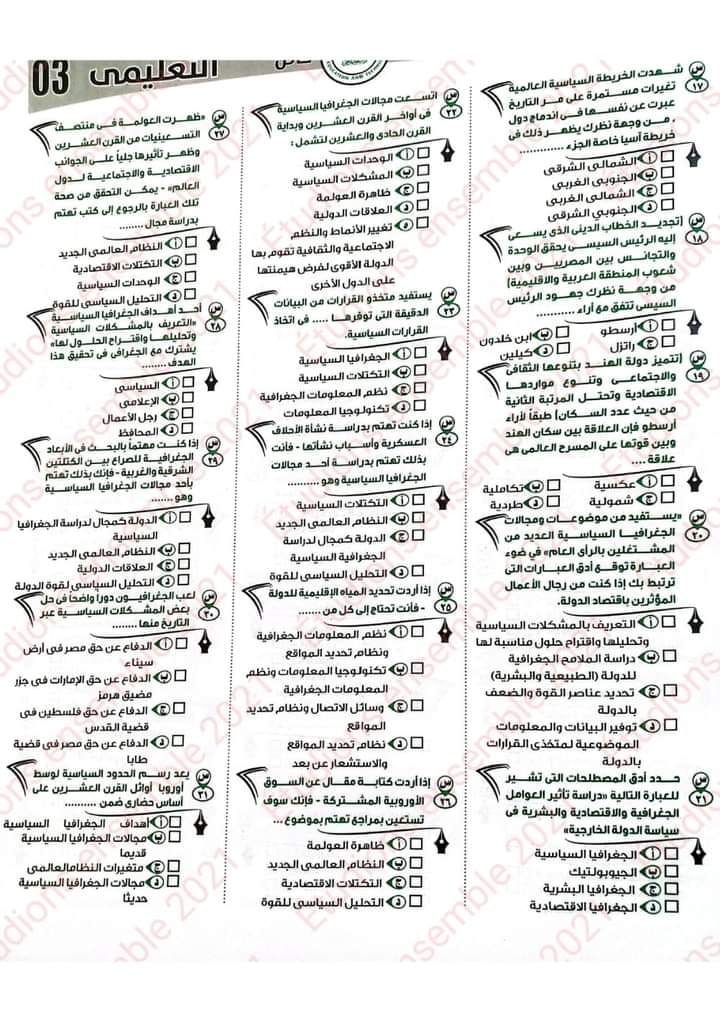 التعليمى 03
س ١٧ شهدت الخريطة السياسية العالمية
تغيرات مستمرة على مر التاريخ
عبرت عن نفسها فى اندماج دول
، من وجهة نظرك يظهر ذلك فى
خريطة آسيا خاصة الجزء ............
أ الشمالى الشرقى
ب الجنوبى الغربى
ج الشمالى الغربى
د الجنوبي الشرقى
س ١٨ (تجديد الخطاب الدينى الذى يسعى
إليه الرئيس السيسى يحقق الوحدة
والتجانس بين المصريين وبين
شعوب المنطقة العربية والإقليمية)
من وجهة نظرك جهود الرئيس
السيسى تتفق مع آراء ..........
أ أرسطو ب ابن خلدون
ج راتزل د كيلين
س ١٩ (تتميز دولة الهند بتنوعها الثقافى
والاجتماعى وتنوع مواردها
الاقتصادية وتحتل المرتبة الثانية
من حيث عدد السكان) طبقاً لآراء
أرسطو فإن العلاقة بين سكان الهند
وبين قوتها على المسرح العالمى هى
علاقة ....
أ عكسية ب تكاملية
ج شمولية د طردية
س ٢٠ «يستفيد من موضوعات ومجالات
الجغرافيا السياسية العديد من
المشتغلين بالرأى العام» فى ضوء
العبارة توقع أدق العبارات التى
ترتبط بك إذا كنت من رجال الأعمال
المؤثرين باقتصاد الدولة.
أ التعريف بالمشكلات السياسية
وتحليلها واقتراح حلول مناسبة لها
ب دراسة الملامح الجغرافية
للدولة (الطبيعية والبشرية)
ج تحديد عناصر القوة والضعف
بالدولة
د توفير البيانات والمعلومات
الموضوعية لمتخذى القرارات
بالدولة
س ٢١ حدد أدق المصطلحات التى تشير
للعبارة التالية «دراسة تأثير العوامل
الجغرافية والاقتصادية والبشرية فى
سياسة الدولة الخارجية»
أ الجغرافيا السياسية
ب الجيوبولتيك
ج الجغرافيا البشرية
د الجغرافيا الاقتصادية
س ٢٢ اتسعت مجالات الجغرافيا السياسية
فى أواخر القرن العشرين وبداية
القرن الحادى والعشرين لتشمل:
أ الوحدات السياسية
ب المشكلات السياسية
ج ظاهرة العولمة
د العلاقات الدولية
تغيير الأنماط والنظم
الاجتماعية والثقافية تقوم بها
الدولة الأقوى لفرض هيمنتها
على الدول الأخرى
س ٢٣ يستفيد متخذو القرارات من البيانات
الدقيقة التى توفرها ..... فى اتخاذ
القرارات السياسية.
أ الجغرافيا السياسية
ب التكتلات السياسية
ج نظم المعلومات الجغرافية
د تكنولوجيا المعلومات
س ٢٤ إذا كنت تهتم بدراسة نشأة الأحلاف
العسكرية وأسباب نشأتها - فأنت
بذلك تهتم بدراسة أحد مجالات
الجغرافيا السياسية وهو ..........
أ التكتلات السياسية
ب النظام العالمى الجديد
ج الدولة كمجال لدراسة
الجغرافية السياسية
د التحليل السياسى للقوة
س ٢٥ إذا أردت تحديد المياه الإقليمية للدولة
- فأنت تحتاج إلى كل من .......
أ نظم المعلومات الجغرافية
ونظام تحديد المواقع
ب تكنولوجيا المعلومات ونظم
المعلومات الجغرافية
ج وسائل الاتصال ونظام تحديد
المواقع
د نظام تحديد المواقع
والاستشعار عن بعد
س ٢٦ إذا أردت كتابة مقال عن السوق
الأوروبية المشتركة - فإنك سوف
تستعين بمراجع تهتم بموضوع ...
أ ظاهرة العولمة
ب النظام العالمى الجديد
ج التكتلات الاقتصادية
د التحليل السياسى للقوة
س ٢٧ «ظهرت العولمة فى منتصف
التسعينيات من القرن العشرين
وظهر تأثيرها جلياً على الجوانب
الاقتصادية والاجتماعية لدول
العالم» - يمكن التحقق من صحة
تلك العبارة بالرجوع إلى كتب تهتم
بدراسة مجال ........
أ النظام العالمى الجديد
ب التكتلات الاقتصادية
ج الوحدات السياسية
د التحليل السياسى للقوة
س ٢٨ أحد أهداف الجغرافيا السياسية
«التعريف بالمشكلات السياسية
وتحليلها واقتراح الحلول لها»
يشترك مع الجغرافى فى تحقيق هذا
الهدف ........
أ السياسى
ب الإعلامى
ج رجل الأعمال
د المحافظ
س ٢٩ إذا كنت مهتماً بالبحث فى الأبعاد
الجغرافية للصراع بين الكتلتين
الشرقية والغربية - فإنك بذلك تهتم
بأحد مجالات الجغرافيا السياسية
وهو .......
أ الدولة كمجال لدراسة الجغرافيا
السياسية
ب النظام العالمى الجديد
ج العلاقات الدولية
د التحليل السياسى لقوة الدولة
س ٣٠ لعب الجغرافيون دوراً واضحاً فى حل
بعض المشكلات السياسية عبر
التاريخ منها ........
أ الدفاع عن حق مصر فى أرض
سيناء
ب الدفاع عن حق الإمارات فى جزر
مضيق هرمز
ج الدفاع عن حق فلسطين فى
قضية القدس
د الدفاع عن حق مصر فى قضية
طابا
س ٣١ يعد رسم الحدود السياسية لوسط
أوروبا أوائل القرن العشرين على
أساس حضارى ضمن ..........
أ أهداف الجغرافيا السياسية
ب مجالات الجغرافيا السياسية
قديما
ج متغيرات النظام العالمى
د مجالات الجغرافيا السياسية
حديثا